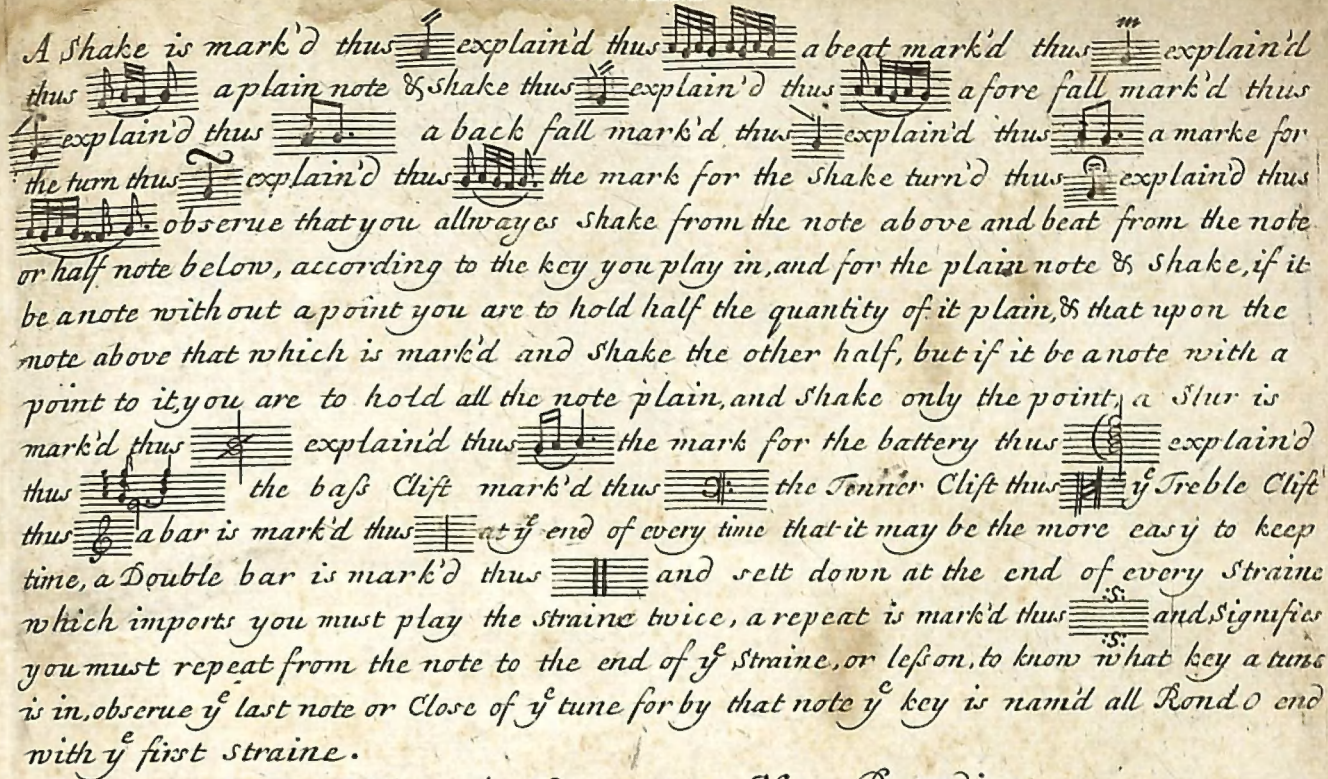 A Shake is mark'd thus explain'd thus a beat mark'd thus explain'd
thus a plain note & shake thus explain'd thus a fore fall mark'd thus
explain'd thus a back fall mark'd thus explain'd thus a marke for
the turn thus explain'd thus the mark for the shake turn'd thus explain'd thus
observe that you allwayes shake from the note above and beat from the note
or half note below, according to the key you play in, and for the plain note & shake, if it
be a note without a point you are to hold half the quantity of it plain, & that upon the
note above that which is mark'd and shake the other half, but if it be a note with a
point to it, you are to hold all the note plain, and shake only the point, a Slur is
mark'd thus explain'd thus the mark for the battery thus explain'd
thus the baſs Clift mark'd thus the Tenner Clift thus yᵉ Treble Clift
thus a bar is mark'd thus at yᵉ end of every time that it may be the more easy to keep
time, a Double bar is mark'd thus and sett down at the end of every Straine
which imports you must play the straine twice, a repeat is mark'd thus :S: :S: and Signifies
you must repeat from the note to the end of yᵉ Straine, or leſson, to know what key a tune
is in, observe yᵉ last note or Close of yᵉ tune for by that note yᵉ key is nam'd all Rondo end
with yᵉ first straine.